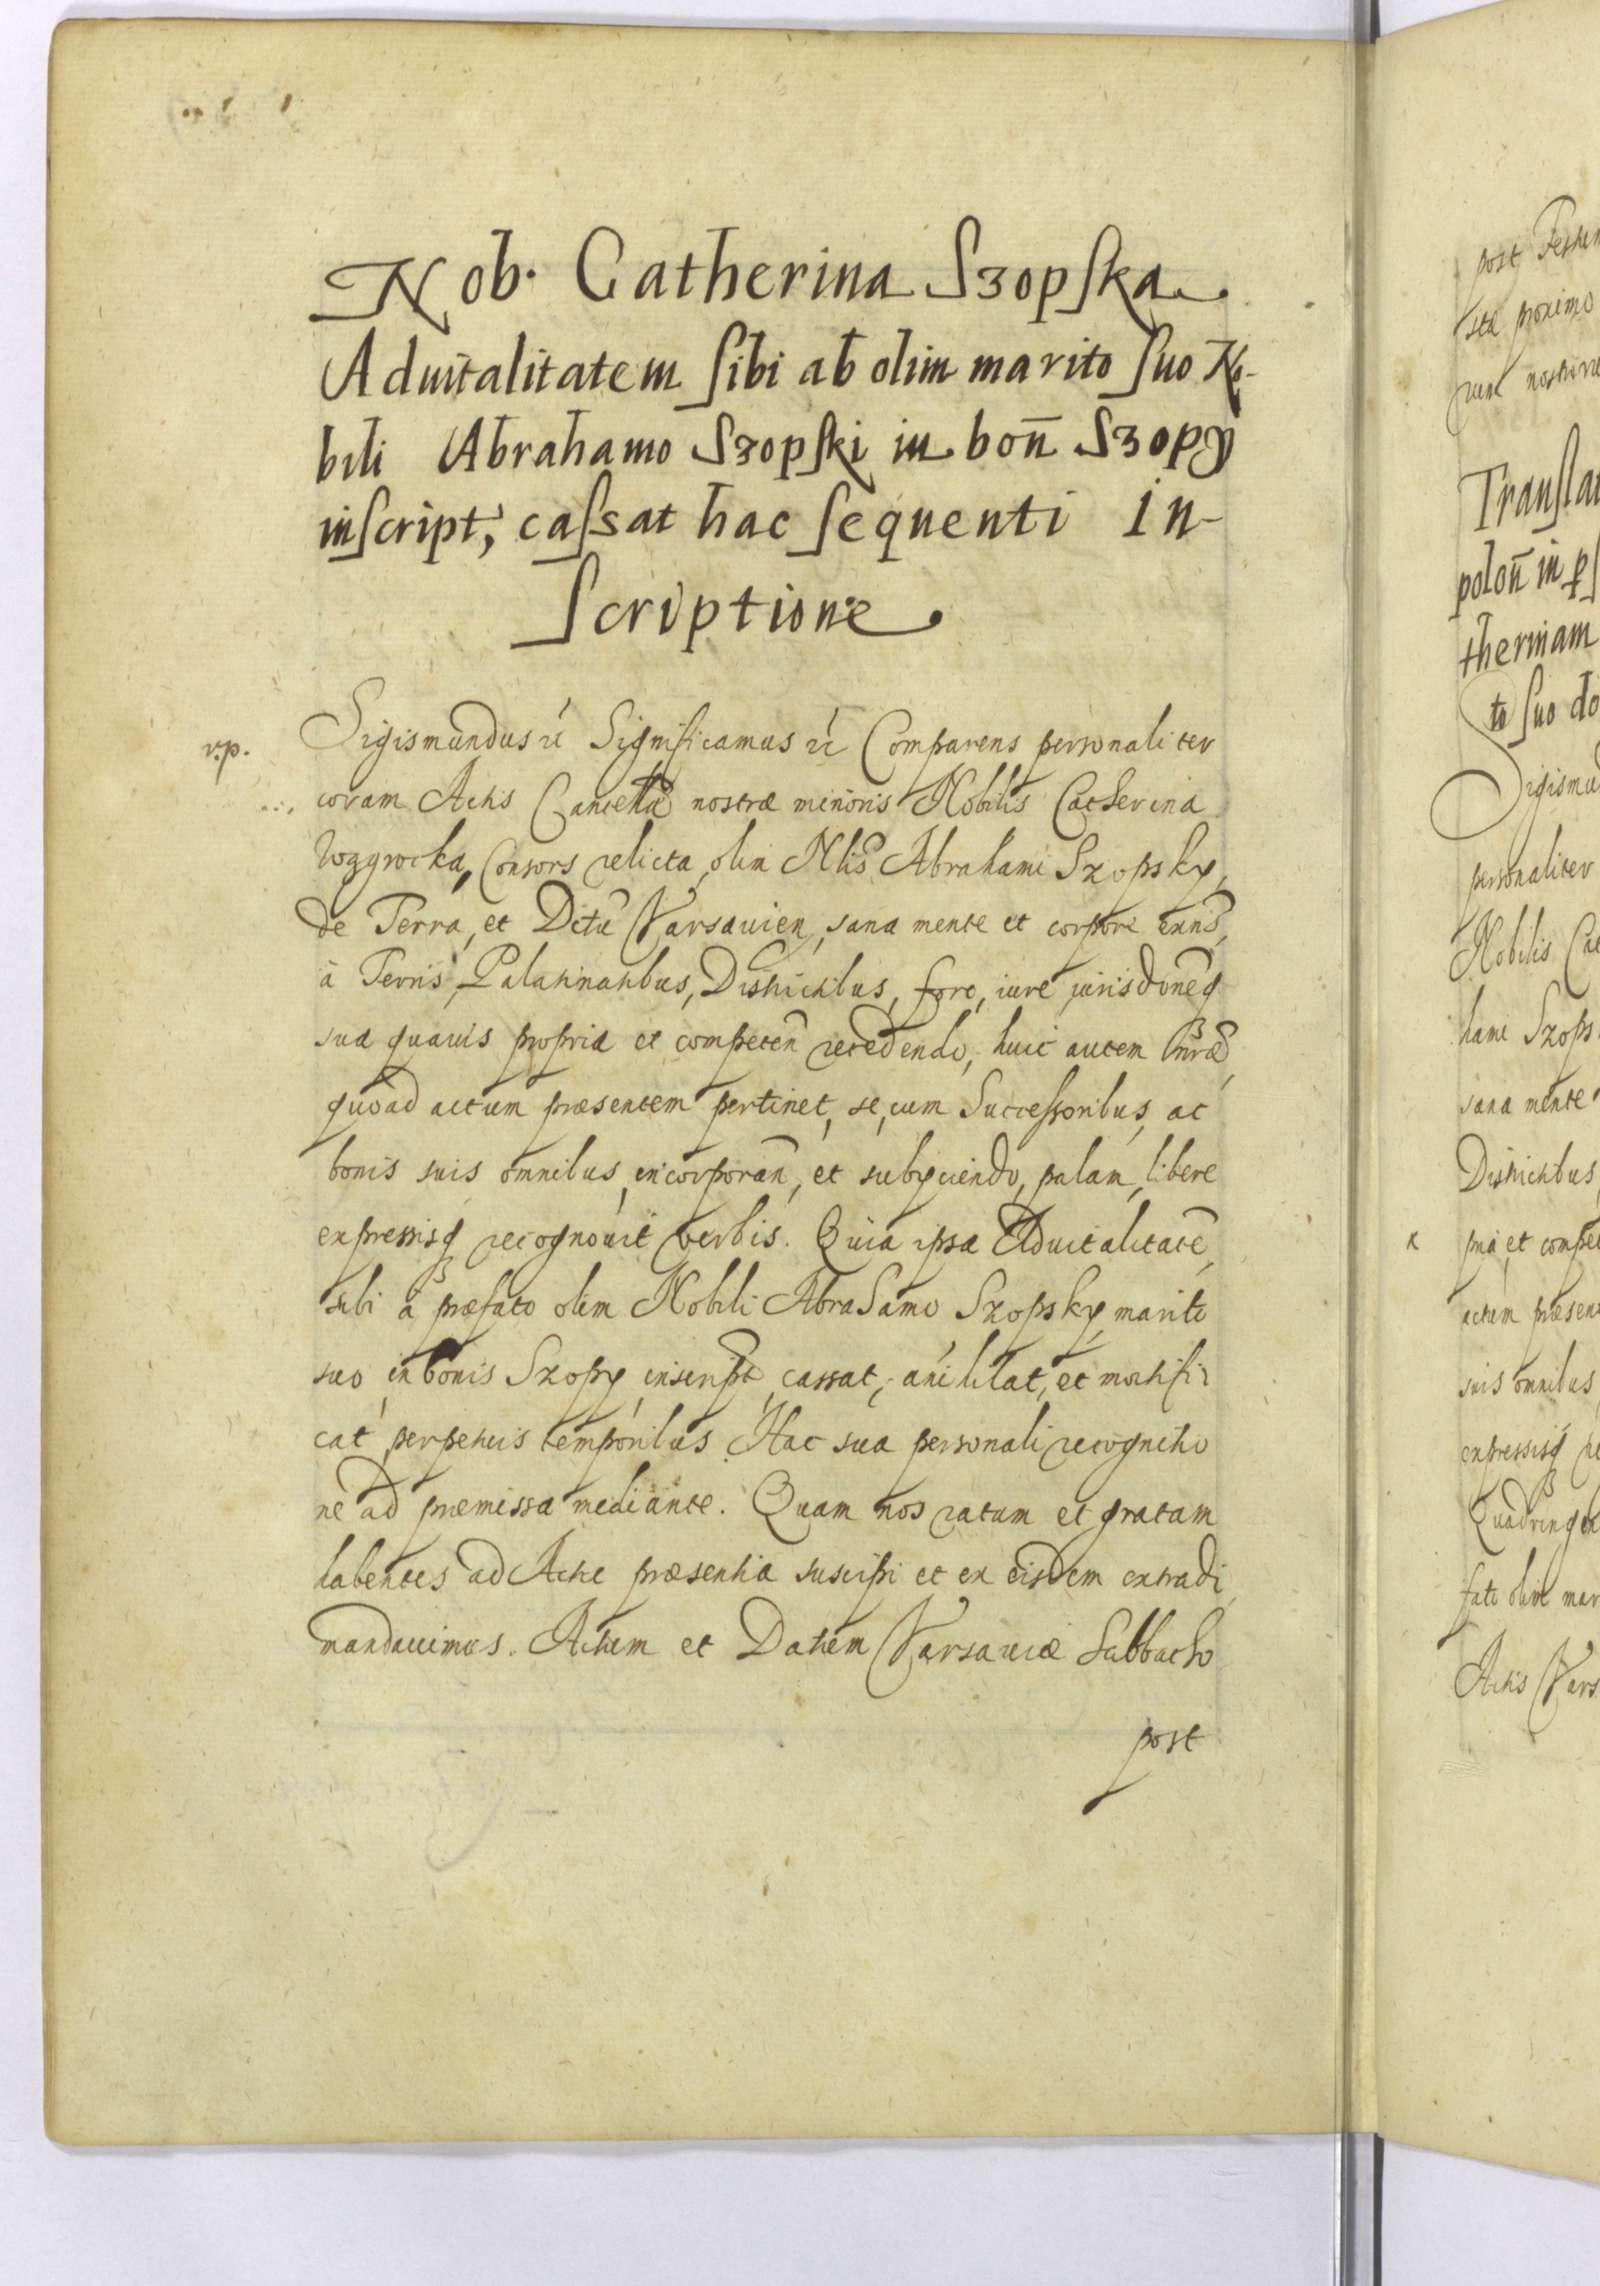 Nob. Catherina Szopska
Aduitalitatem sibi ab olim marito suo No-
bili Abrahamo Szopski in boñ Szopy
inscript, cassat hac sequenti in-
scriptione
v.p. Sigismundus &c Significamus &c Comparens personaliter
coram Actis Cancellæ nostræ minoris Nobilis Catherina
Consors relicta, olim Nlis Abrahami Szopsky,
de Terra, et Dctu Varsauien, sana mente et corpore exns,
à Terris, Palatinatibus, Districtibus, foro, iure jurisdoneq
sua quauis propria et competeñ recedendo, huic autem
quoad actum præsentem pertinet, se, cum Successoribus, ac
bonis suis omnibus, incorporañ, et subyciendo, palam, libere
expressisq recognouit verbis. Quia ipsa Aduitalitatẽ,
sibi à præfato olim Nobili Abrahamo Szopsky, marito
suo, in bonis Szopy, inscript, cassat, anihilat, et mortifi-
cat, perpetuis temporibus. Hac sua personali recognitio
ne ad præmissa mediante. Quam nos ratam et gratam
habentes ad Acta præsentia suscipi et ex eisdem extradi,
mandauimus. Actum et Datum Varsauiæ Sabbatho
post
post
sta proximo
Translat
poloñ in
therinam
to suo do
personaliter
Nobilis
hami Szops
sana mente
Districtibus,
pria, et compet
actum præsen
suis omnibus
expressisq
Quadringen
fati olim mar
Actis Vars